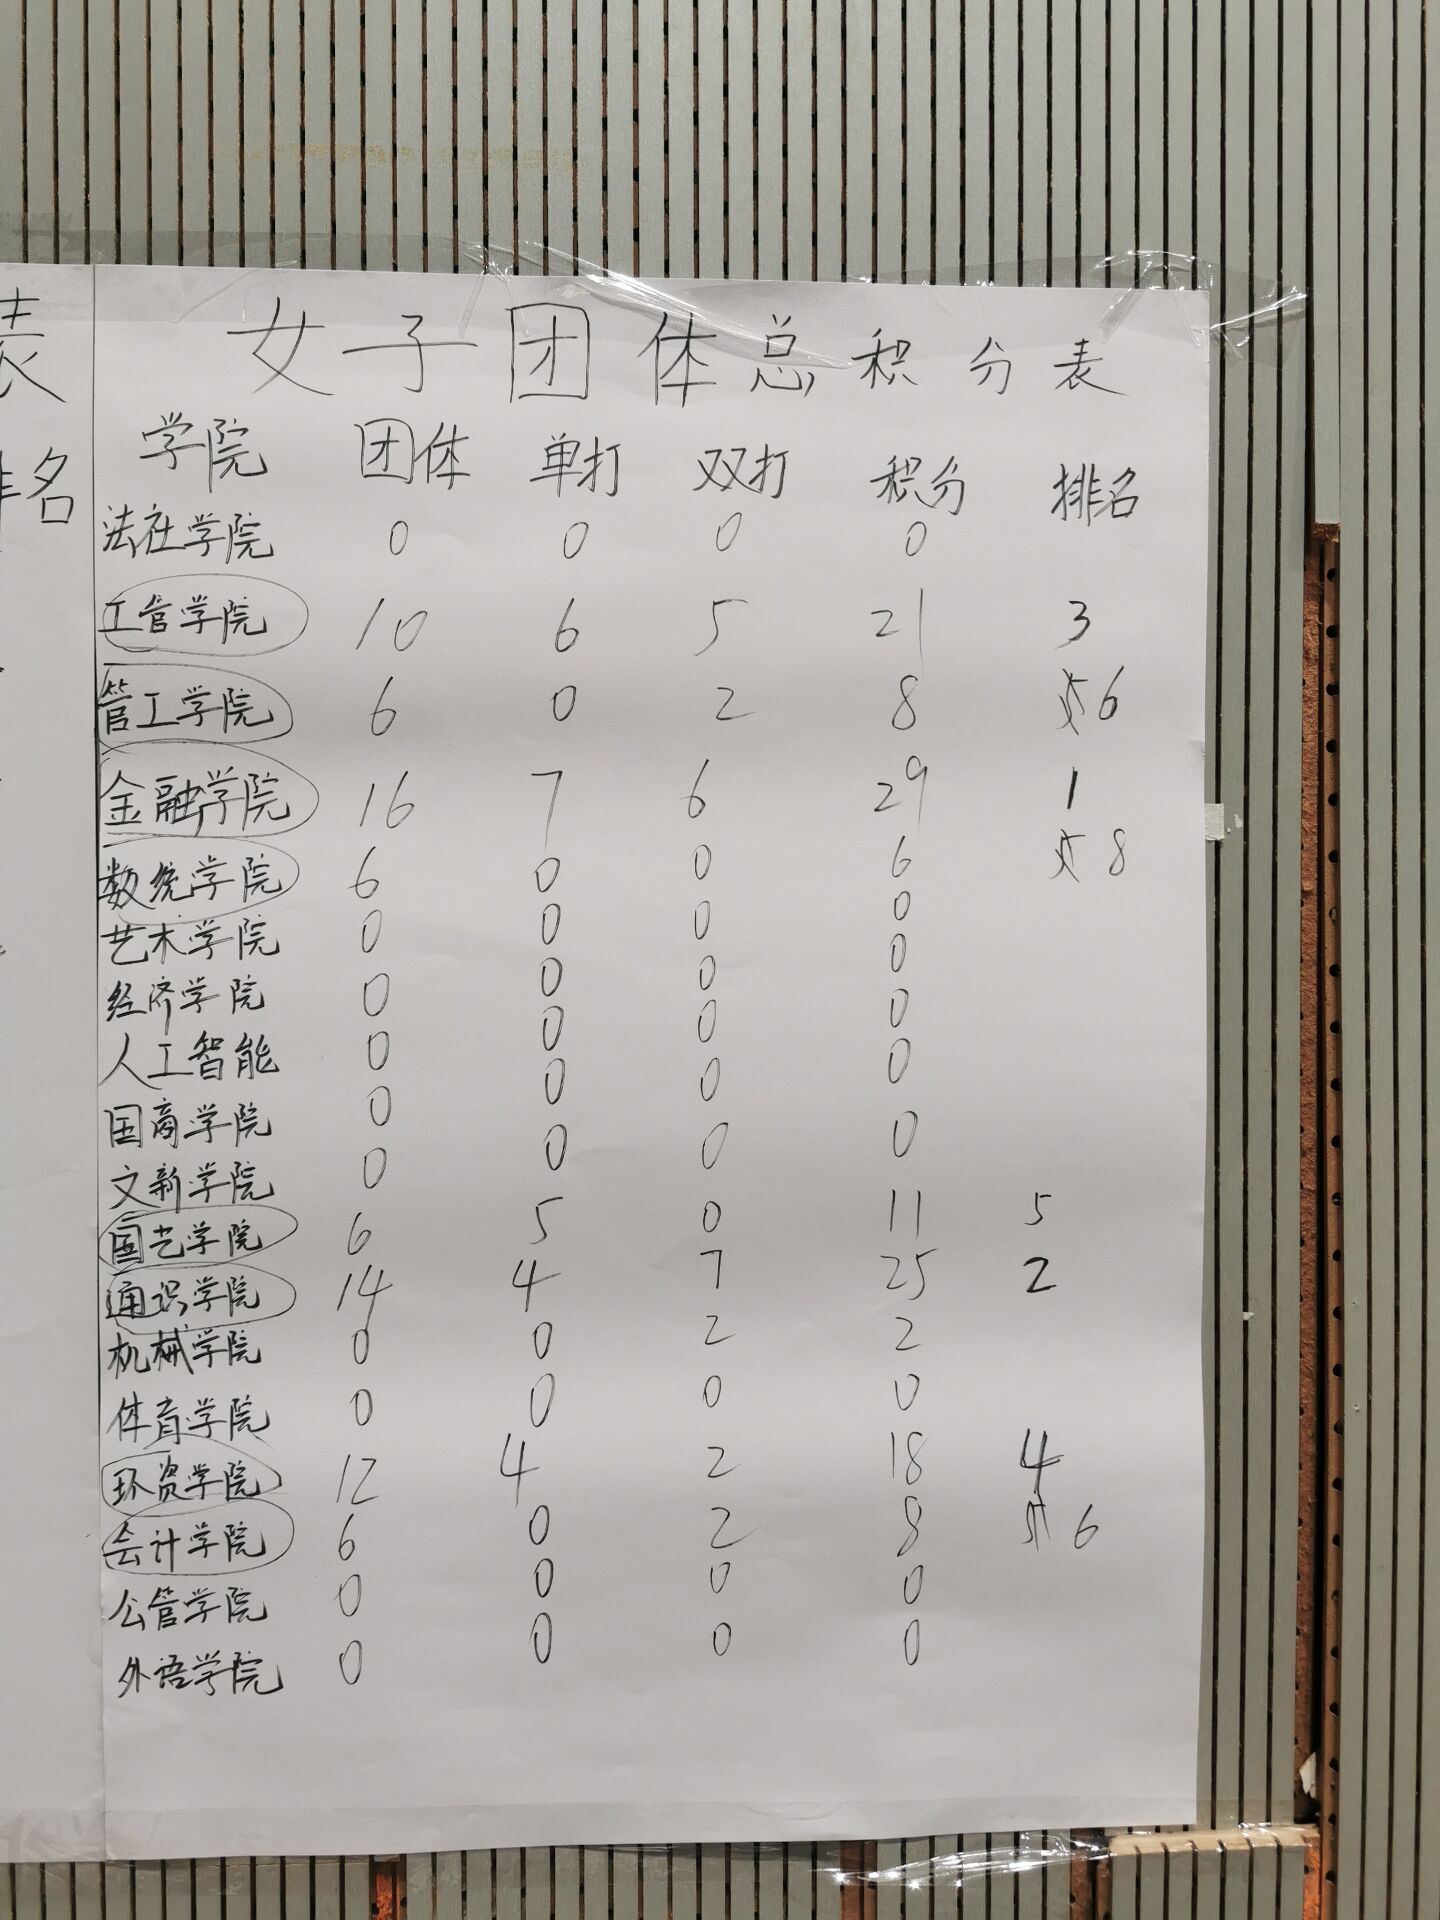 表
排名
女子团体总积分表
学院 团体 单打 双打 积分 排名
法社学院 0 0 0 0
工管学院 10 6 5 21 3
管工学院 6 0 2 8 6
金融学院 16 7 6 29 1
数统学院 6 0 0 6 8
艺术学院 0 0 0 0
经济学院 0 0 0 0
人工智能 0 0 0 0
国商学院 0 0 0 0
文新学院 0 0 0 0
国艺学院 6 5 0 11 5
通识学院 14 4 7 25 2
机械学院 0 0 2 2
体育学院 0 0 0 0
环资学院 12 4 2 18 4
会计学院 6 0 2 8 6
公管学院 0 0 0 0
外语学院 0 0 0 0